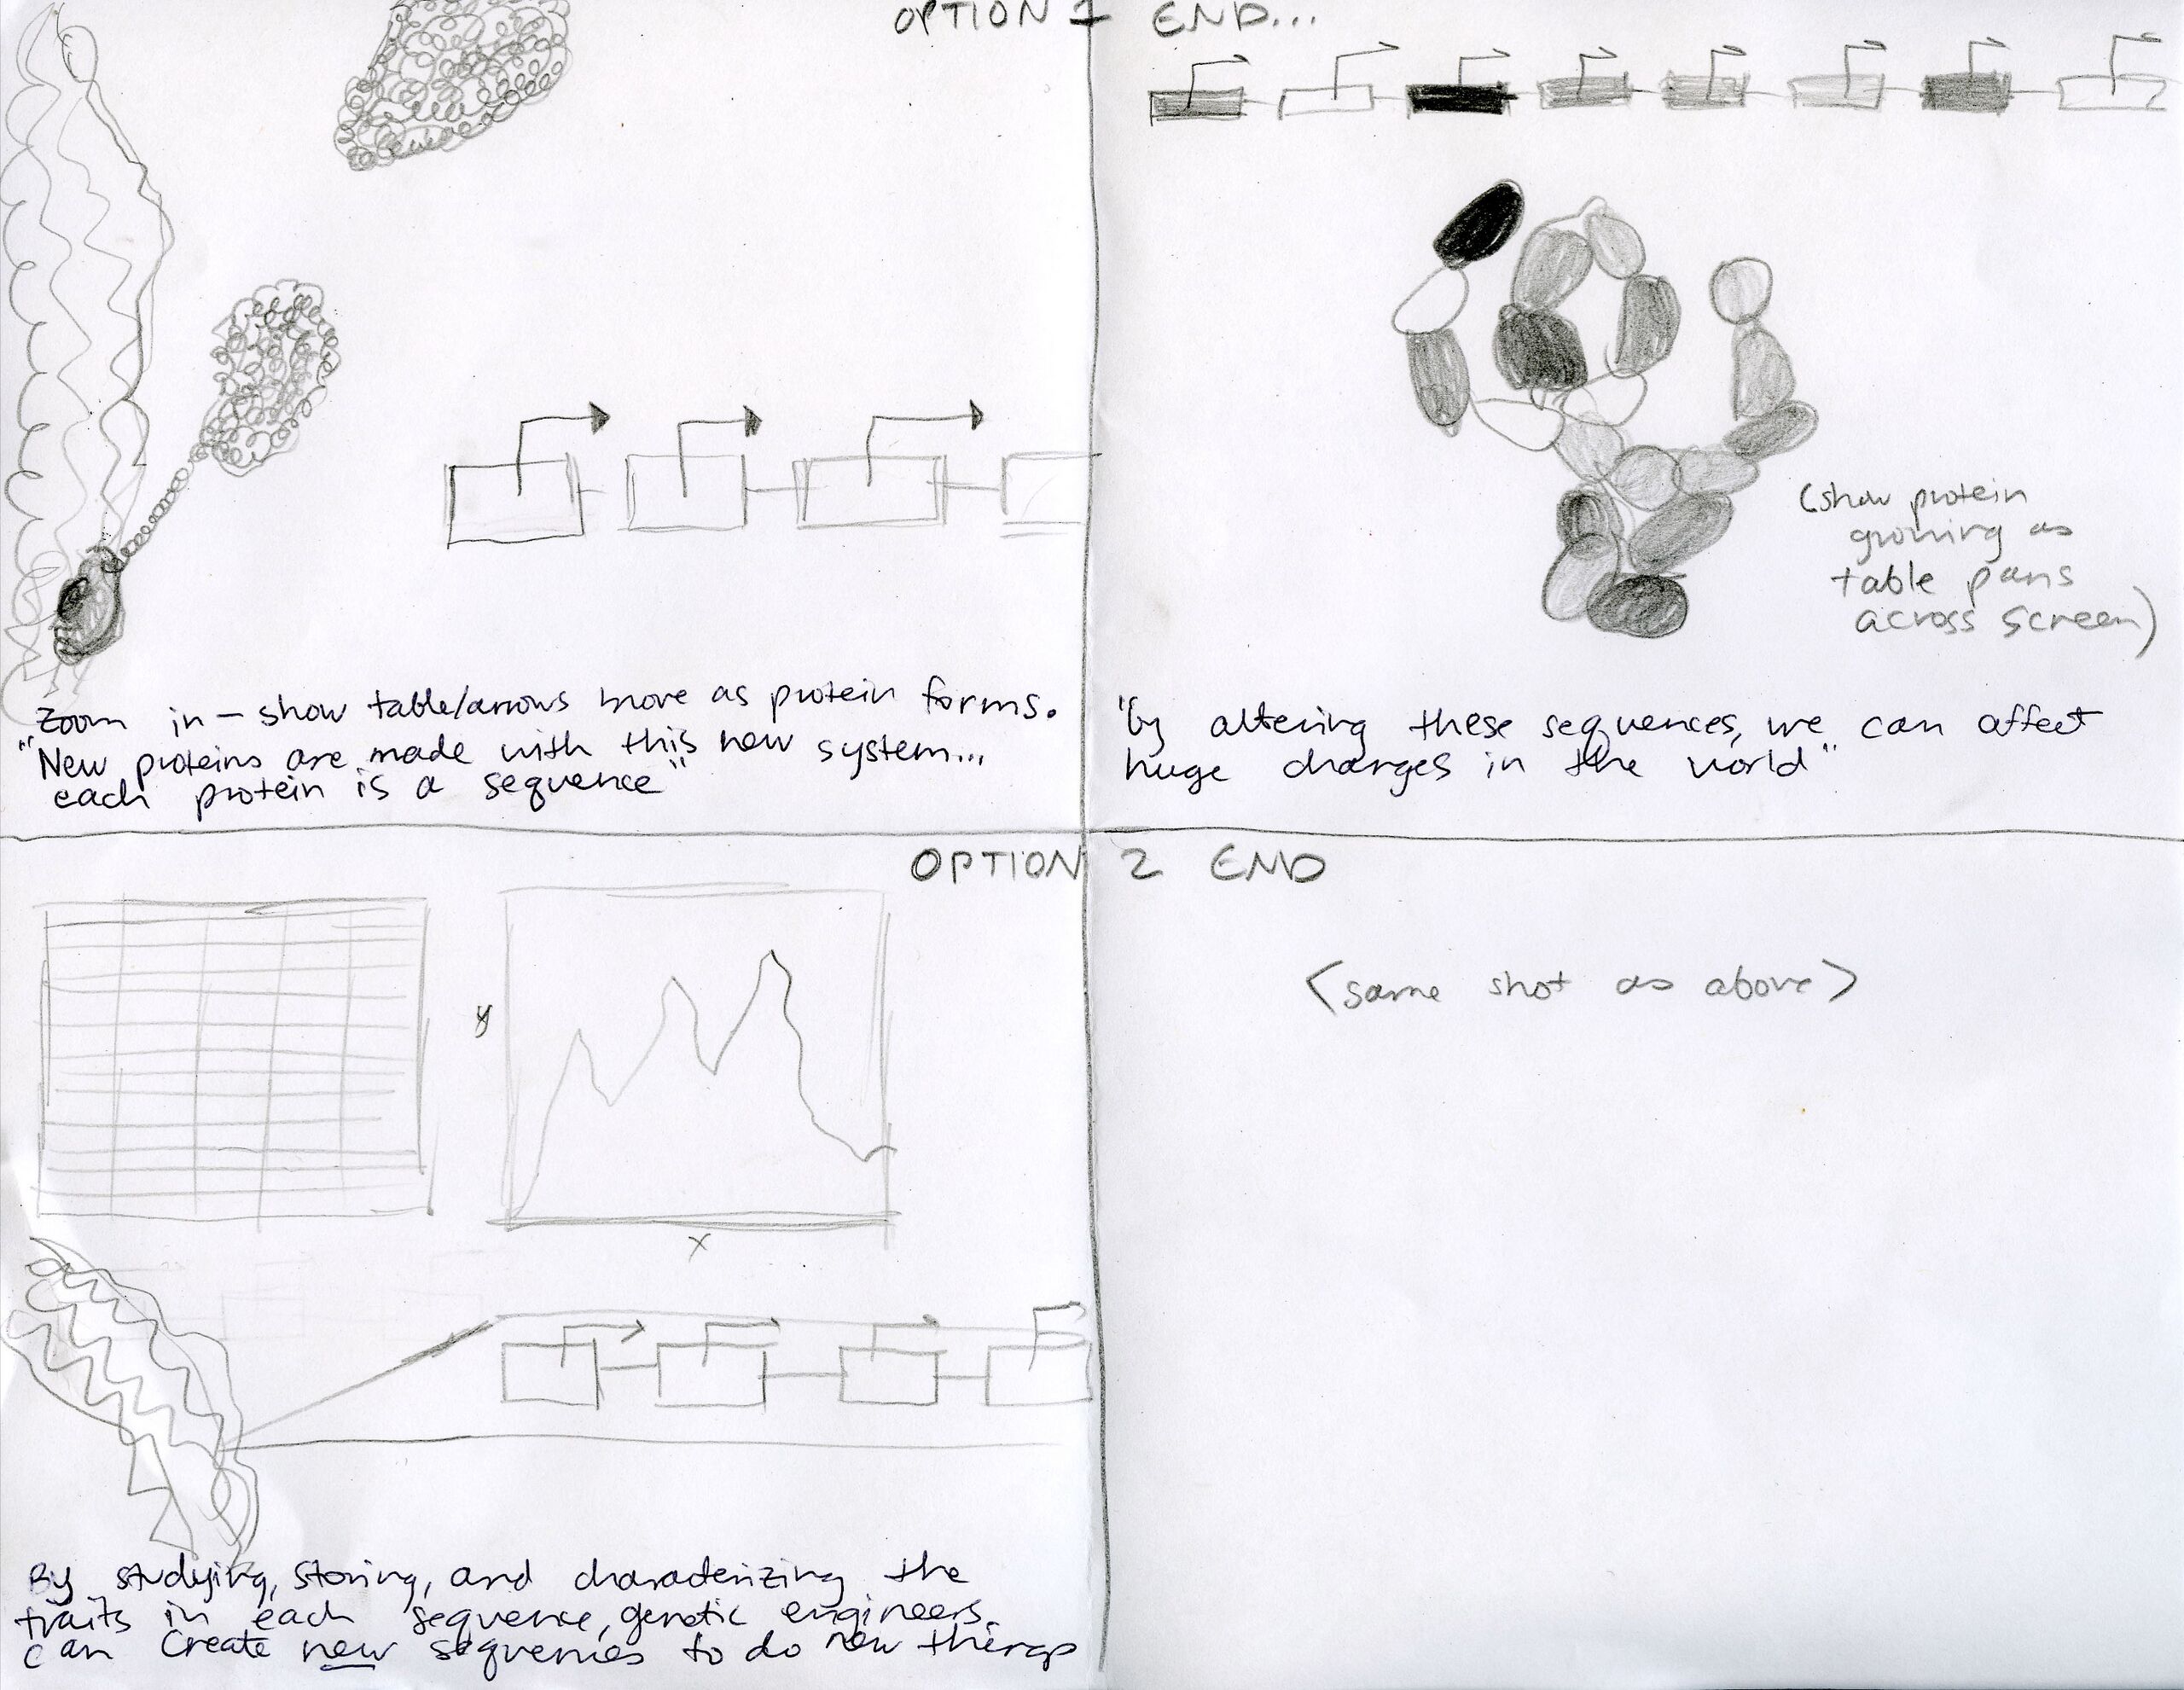 OPTION 1 END...
(show protein
growing as
table pans
across screen)
Zoom in – show table/arrows move as protein forms.
"New proteins are made with this new system...
each protein is a sequence"
"by altering these sequences, we can affect
huge changes in the world"
OPTION 2 END
y
x
<same shot as above>
By studying, storing, and characterizing the
traits in each sequence, genetic engineers
can create new sequences to do new things